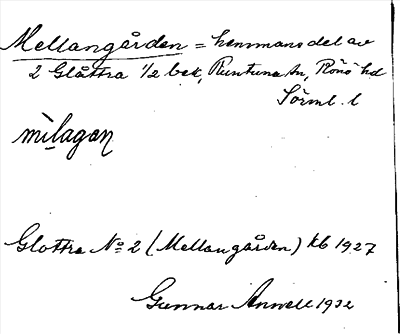 Mellangården = hemmansdel av
2 Glåttra 1/2 bek, Runtuna sn, Rönö hd
Sörml. l
mìlagaɳ
Glottra No 2 (Mellangården) kb 1927
Gunnar Anwell 1932